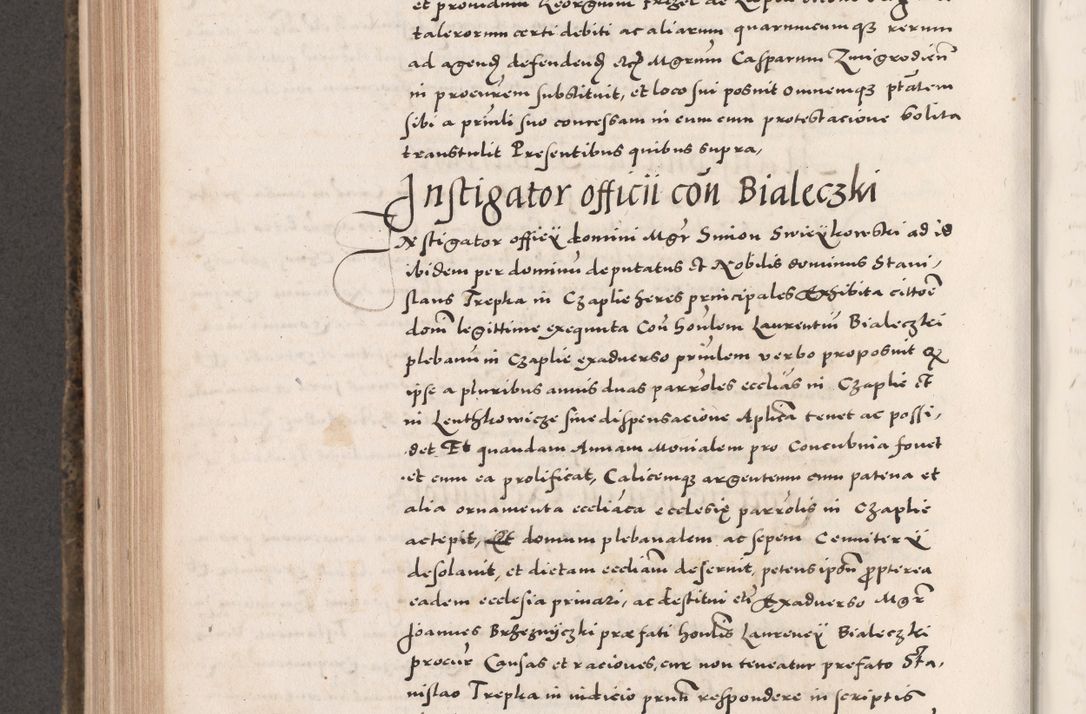 et providum Georgium
talerorum certi debiti ac aliarum quarumcumqȝ rerum
ad agend defendend etc Mgrum Casparum Zmigrodień
in procurem substituit, et loco sui posuit omnemqȝ ptātem
sibi a prīnli suo concessam in eum cum protestacione solita
transtulit Presentibus quibus supra,
Instigator officii con Bialeczki
Instigator officÿ domini Mgr Simon Swieÿkowski ad id
ibidem per dominū deputatus et Nobilis dominus Stani,
slaus Trepka in Czaplie heres principales Exhibita cittoē
dom̄ legittime exequuta Con honlem Laurentiū Bialeczki
plebanū in Czaplie exadverso prīnlem verbo proposuit Qz
ipse a pluribus annis duas parrōles ecclīas in Czaplie et
in Lenthkowicze sine dispensacione Aplica tenet ac possi,
det. Et quandam Annam Monialem pro Concubina fovet
et cum ea prolificat, Calicemqȝ argenteum cum patena et
alia ornamenta eccliāca ecclesię parrōlis in Czaplie
accepit, domum plebanalem ac sepem Cemiterÿ
desolavit, et dictam eccliam deservit, petens ipsūm propterea
eadem ecclesia privari, ac destitui etc Exadverso Mgr
Joannes Brzeznyczki præfati honlis Laurencÿ Bialeczki
procur Causas et raciones, cur non teneatur prefato Sta,
nislao Trepka in iudicio pruti respondere in scriptis